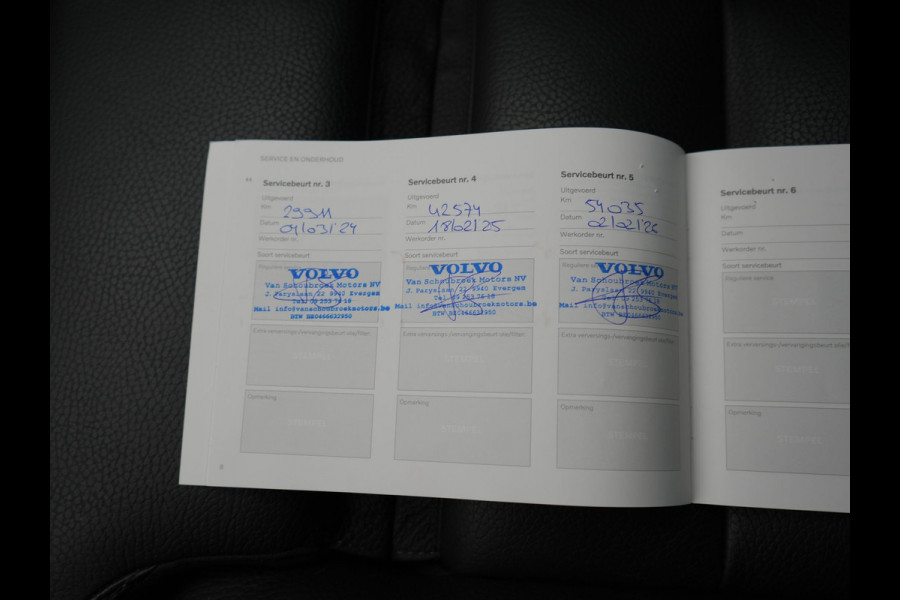 SERVICE EN ONDERHOUD
Servicebeurt nr. 3
Uitgevoerd
Km 29911
Datum 04/03/24
Werkorder nr.
Soort servicebeurt
Reguliere
VOLVO
Van Schoubroek Motors NV
J. Paryslaan 22 9940 Evergem
Tel. 09 253 76 18
Mail info@vanschoubroekmotors.be
BTW BE0466632950
Extra verversings-/vervangingsbeurt olie/filter
STEMPEL
Opmerking
STEMPEL
8
Servicebeurt nr. 4
Uitgevoerd
Km 42574
Datum 18/02/25
Werkorder nr.
Soort servicebeurt
VOLVO
Van Schoubroek Motors NV
J. Paryslaan 22 9940 Evergem
Tel 09 253 76 18
Mail info@vanschoubroekmotors.be
BTW BE0466632950
Extra verversings-/vervangingsbeurt olie/filter
STEMPEL
Opmerking
STEMPEL
Servicebeurt nr. 5
Uitgevoerd
Km 54035
Datum 02/02/26
Werkorder nr.
Soort servicebeurt
Reguliere service
VOLVO
Van Schoubroek Motors NV
J. Paryslaan 22 9940 Evergem
Tel. 09 253 76 18
Mail info@vanschoubroekmotors.be
BTW BE0466632950
Extra verversings-/vervangingsbeurt olie/filter
STEMPEL
Opmerking
STEMPEL
Servicebeurt nr. 6
Uitgevoerd
Km
Datum
Werkorder nr.
Soort servicebeurt
Reguliere service
STEMPEL
Extra verversings-/vervangingsbeurt
STEMPEL
Opmerking
STEMPEL